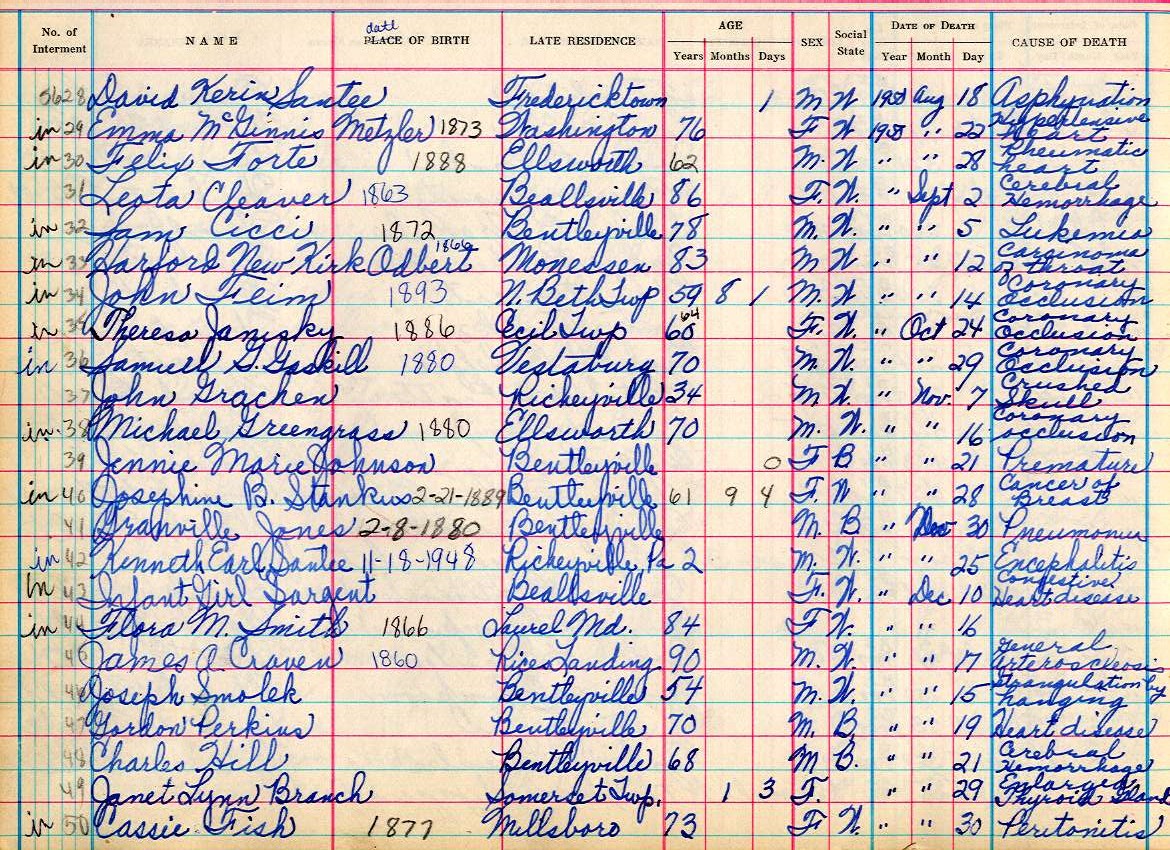 No. of Interment NAME date PLACE OF BIRTH LATE RESIDENCE AGE Years Months Days SEX Social State DATE OF DEATH Year Month Day CAUSE OF DEATH
5628 David Kerin Santee Fredericktown 1 M W 1950 Aug 18 Asphyxation
in 29 Emma McGinnis Metzler) 1873 Washington 76 F W 1950 " 22 Hypertensive Heart
in 30 Felix Forte 1888 Ellsworth 62 M. W " " 28 Rheumatic heart
31 Leota Cleaver 1863 Beallsville 86 F. W. " Sept 2 Cerebral Hemorrhage
in 32 Sam Cicci 1872 Bentleyville 78 M. W. " " 5 Lukemia
in 33 Harford New Kirk Odbert 1866 Monessen 83 M W " " 12 Carcinoma of throat
in 34 John Feim 1893 N. Beth Twp 59 8 1 M. W " " 14 Coronary Occlusion
in 35 Theresa Janisky 1886 Cecil Twp 64 F. W. " Oct 24 Coronary Occlusion
in 36 Samuell G. Gaskill 1880 Vestaburg 70 M. W. " " 29 Coronary Occlusion
37 John Grachen Richeyville 34 M W. " Nov. 7 Crushed Skull
in. 38 Michael Greengrass 1880 Ellsworth 70 M. W. " " 16 Coronary occlusion
39 Jennie Marie Johnson Bentleyville 0 F B " " 21 Premature
in 40 Josephine B. Stankus 2-21-1889 Bentleyville 61 9 4 F. W " " 28 Cancer of Breast
41 Granville Jones 2-8-1880 Bentleyville M. B " Dec 30 Pneumonia
in 42 Kenneth Earl Santee 11-18-1948 Richeyville, Pa 2 M. W. " " 25 Encephalitis
in 43 Infant Girl Sargent Beallsville F. W. " Dec 10 Congestive Heart disease
in 44 Flora M. Smith 1866 Laurel Md. 84 F W. " " 16
45 James A. Craven 1860 Rices Landing 90 M. W. " " 17 general arterosclerosis
46 Joseph Smolek Bentleyville 54 M. W. " " 15 Strangulation by hanging
47 Gordon Perkins Bentleyville 70 M. B. " " 19 Heart disease
48 Charles Hill Bentleyville 68 M B. " " 21 Cerebral Hemorrhage
49 Janet Lynn Branch Somerset Twp. 1 3 F. " " 29 Enlarged Thyroid Gland
in 50 Cassie Fish 1877 Millsboro 73 F W. " " 30 Peritonitis